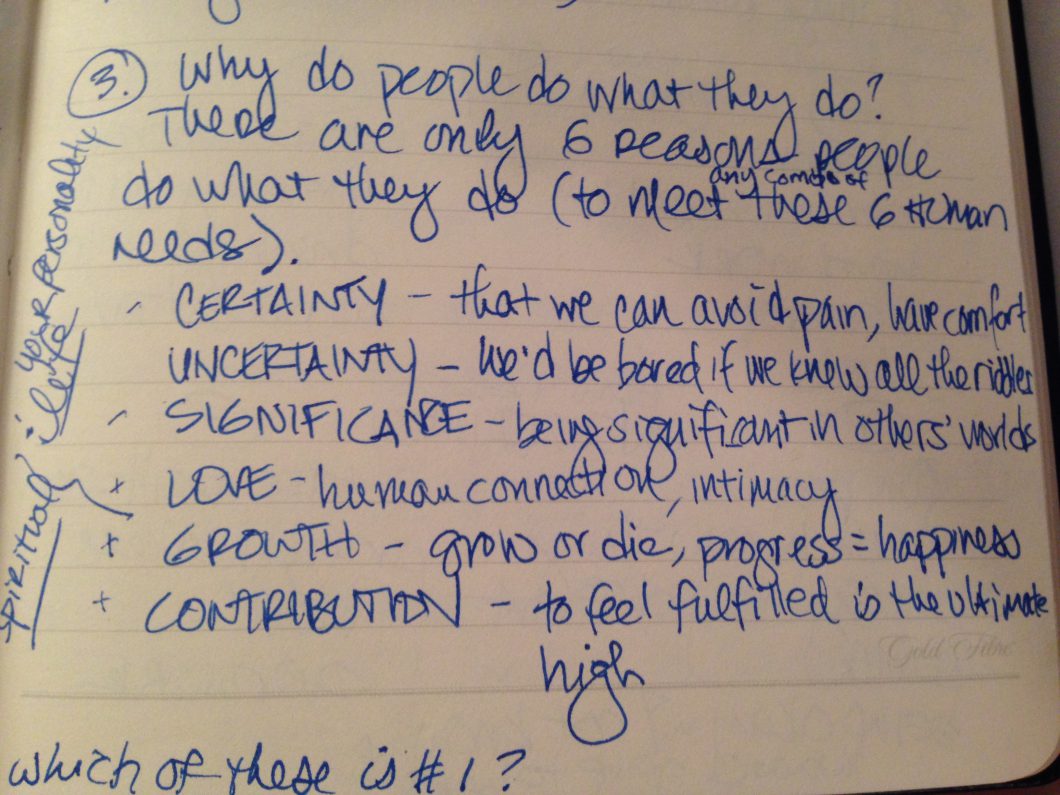 3. Why do people do what they do?
There are only 6 reasons people
do what they do (to meet any combo of these 6 Human
needs).
- CERTAINTY - that we can avoid pain, have comfort
UNCERTAINTY - we'd be bored if we knew all the riddles
- SIGNIFICANCE - being significant in others' worlds
+ LOVE - human connection, intimacy
+ GROWTH - grow or die, progress = happiness
+ CONTRIBUTION - to feel fulfilled is the ultimate
high
Gold Fibre
which of these is #1?
your personality
life
spiritual